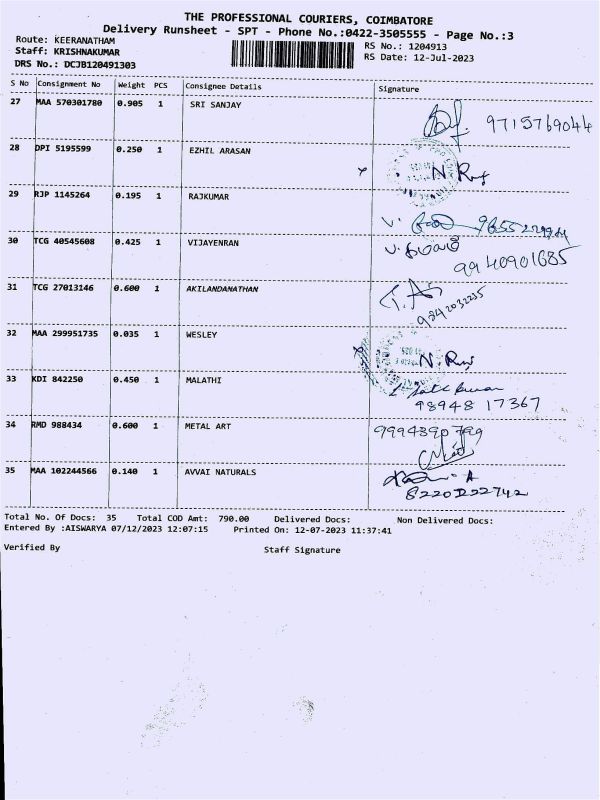 THE PROFESSIONAL COURIERS, COIMBATORE
Delivery Runsheet - SPT - Phone No.:0422-3505555 - Page No.:3
Route: KEERANATHAM
RS No.: 1204913
Staff: KRISHNAKUMAR
RS Date: 12-Jul-2023
DRS No.: DCJB120491303
S No Consignment No Weight PCS Consignee Details Signature
27 MAA 570301780 0.905 1 SRI SANJAY
9715769044
28 DPI 5195599 0.250 1 EZHIL ARASAN
N. Raj
29 RJP 1145264 0.195 1 RAJKUMAR
30 TCG 40545608 0.425 1 VIJAYENRAN
9940901685
31 TCG 27013146 0.600 1 AKILANDANATHAN
9842032235
32 MAA 299951735 0.035 1 WESLEY
N. Raj
33 KDI 842250 0.450 1 MALATHI
98948 17367
34 RMD 988434 0.600 1 METAL ART
9994390799
35 MAA 102244566 0.140 1 AVVAI NATURALS
Total No. Of Docs: 35 Total COD Amt: 790.00 Delivered Docs: Non Delivered Docs:
Entered By :AISWARYA 07/12/2023 12:07:15 Printed On: 12-07-2023 11:37:41
Verified By Staff Signature